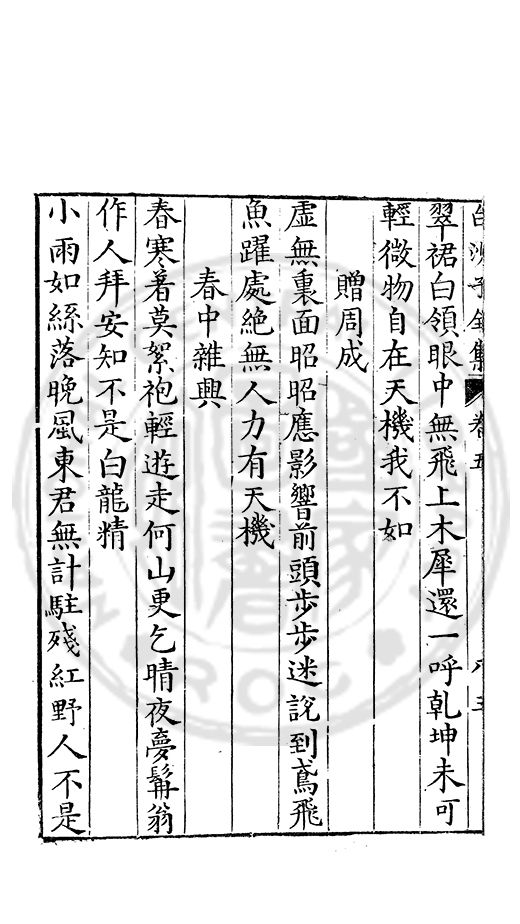 白沙子全集 卷五
翠裙白領眼中無飛上木犀還一呼乾坤未可
輕微物自在天機我不如
贈周成
虛無裏面昭昭應影響前頭步步迷說到鳶飛
魚躍處絕無人力有天機
春中雜興
春寒着莫絮袍輕遊走何山更乞晴夜夢髯翁
作人拜安知不是白龍精
小雨如絲落晚風東君無計駐殘紅野人不是